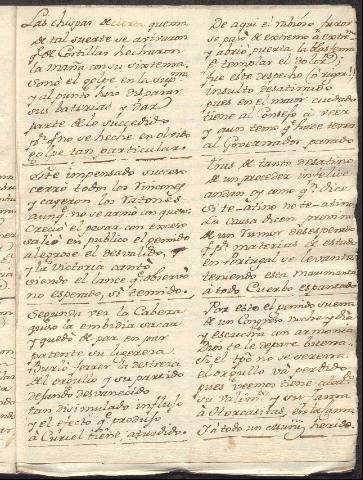 Las chispas de
de tal suerte se arrivaron
q.e de Cortillas hecharon
la maña con su
Sonò el golpe en la
y al punto hizo disparar
sus baterias y dar
parte de lo succedido
p.r q.e no se heche en olvido
golpe tan particular.
Este impensado suceso
cerrò todos los rincones
y cayeron los ratones
aunq.e no se armò con queso:
Creciò el pesar con exceso
saliò en publico el gemido
alegrose el desvalido
y la victoria cantò
viendo el lance q.e
no esperado, si temido.
Segunda vez la Cabeza
quiso la embidia sacar
y quedò de par en par
patente su ligereza
Burlò ferrer la destreza
del orgullo y su partido
dejando desvanecido
tan disimulado influjo
y el efecto q.e produjo
à Curiel tiene aturdido.
De aqui el rabioso furor
se pasò de extremo à extremo
y abriò puerta
templar el dolor;
fue este despecho (ò rigor!)
insulto desatinado
pues en el maior cuidado
tiene al Consejo à veer
y aun temo q.e hace tener
al Governador parado
de tanto desatino
de un proceder infelice
andan oy como q.e dice
Si te-atino no te-atino
la Causa dicen
de un rumor desesperado
q.e p.r materias de estado
en Portugal se levantò
teniendo esta
à todo Cuerbo espantado.
Por este el partido suena
de un Congreso noche y dia
y escucha con armonia
Dios se la depare buena
Si el tpo no se serena
el orgullo và perdido
pues veemos tiene
su valim.to y su
à Horcasitas, en la
Y à todo un Muñiz herido.